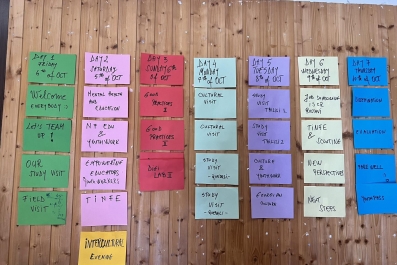 DAY 1
FRIDAY
OF OCT
Welcome
EVERYBODY
LET'S TEAM
UP !
OUR
STUDY VISIT
FIELD
VISIT
DAY 2
SATURDAY
5th OF OCT
MENTAL HEALTH
AND
EDUCATION
EDU &
YOUTHWORK
EMPOWERING
EDUCATORS
TINFE
INTERCULTURAL
EVENING
DAY 3
SUNDAY 6th
OF OCT
GOOD
PRACTICES
I
GOOD
PRACTICES II
LAB II
DAY 4
MONDAY
7th OF OCT
CULTURAL
VISIT
CULTURAL
VISIT
STUDY
VISIT
STUDY
VISIT
DAY 5
TUESDAY
8th OF OCT
STUDY
VISIT
STUDY
VISIT
CULTURE &
YOUTHWORK
DAY 6
WEDNESDAY
9th OF OCT
JOB SHADOWING
TINFE
&
NEW
PERSPECTIVES
NEXT
STEPS
DAY 7
THURSDAY
OF OCT
EVALUATION
FAREWELL